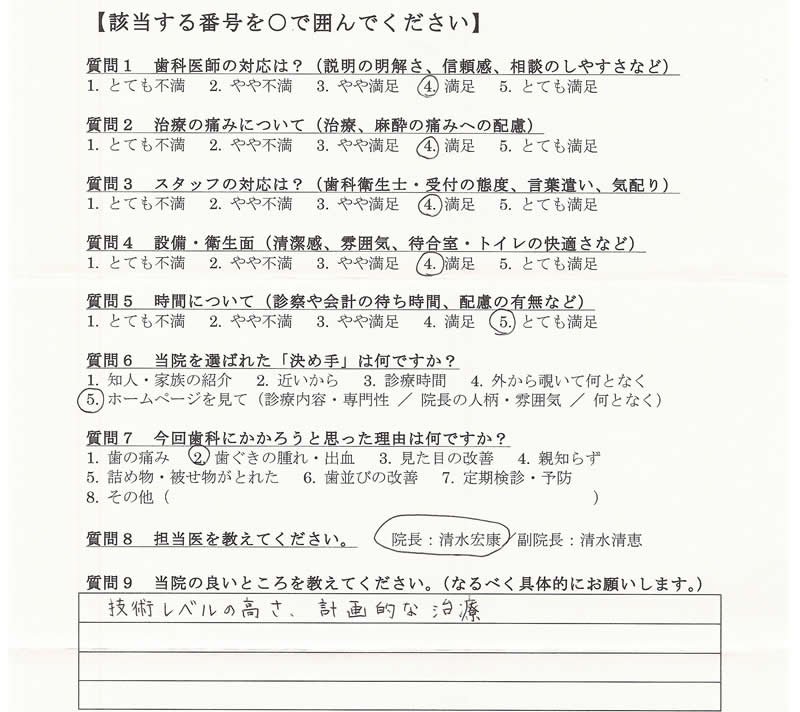 【該当する番号を〇で囲んでください】
質問１ 歯科医師の対応は？（説明の明解さ、信頼感、相談のしやすさなど）
1. とても不満 2. やや不満 3. やや満足 4. 満足 5. とても満足
質問２ 治療の痛みについて（治療、麻酔の痛みへの配慮）
1. とても不満 2. やや不満 3. やや満足 4. 満足 5. とても満足
質問３ スタッフの対応は？（歯科衛生士・受付の態度、言葉遣い、気配り）
1. とても不満 2. やや不満 3. やや満足 4. 満足 5. とても満足
質問４ 設備・衛生面（清潔感、雰囲気、待合室・トイレの快適さなど）
1. とても不満 2. やや不満 3. やや満足 4. 満足 5. とても満足
質問５ 時間について（診察や会計の待ち時間、配慮の有無など）
1. とても不満 2. やや不満 3. やや満足 4. 満足 5. とても満足
質問６ 当院を選ばれた「決め手」は何ですか？
1. 知人・家族の紹介 2. 近いから 3. 診療時間 4. 外から覗いて何となく
5. ホームページを見て（診療内容・専門性 ／ 院長の人柄・雰囲気 ／ 何となく）
質問７ 今回歯科にかかろうと思った理由は何ですか？
1. 歯の痛み 2. 歯ぐきの腫れ・出血 3. 見た目の改善 4. 親知らず
5. 詰め物・被せ物がとれた 6. 歯並びの改善 7. 定期検診・予防
8. その他（ ）
質問８ 担当医を教えてください。 院長：清水宏康／副院長：清水清恵
質問９ 当院の良いところを教えてください。（なるべく具体的にお願いします。）
技術レベルの高さ、計画的な治療